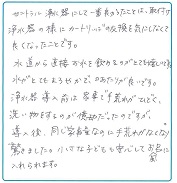 セントラル浄水器にして一番良かったことは、取付け
浄水器の様にカートリッジの交換を気にしなくて
良くなったことです。
水道から直接お水を飲めるのがとても嬉しい
水がとてもまろやかで、口あたりが良いです。
浄水器導入前は家事で手荒れがひどく、
洗い物をするのが億劫だったのですが、
導入後、同じ家事なのに手荒れがなくなり
驚きました。小さな子どもも安心してお風呂に
入れられます。